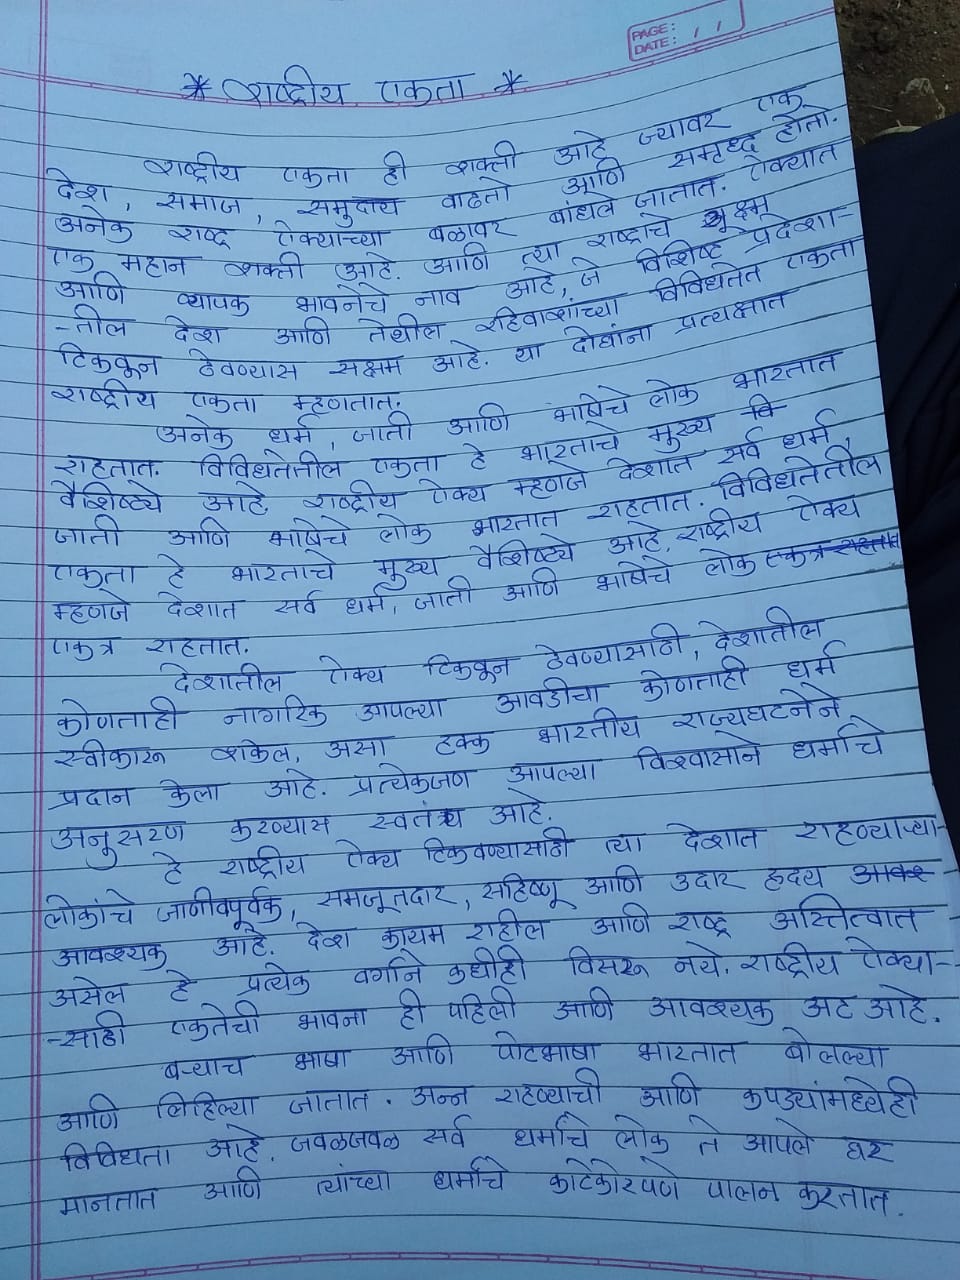 PAGE:
DATE: / /
* राष्ट्रीय एकता *
राष्ट्रीय एकता ही शक्ती आहे ज्यावर एक
देश, समाज, समुदाय वाढतो आणि समृध्द होतो.
अनेक राष्ट्र ऐक्याच्या बळावर बांधले जातात. ऐक्यात
एक महान शक्ती आहे. आणि त्या राष्ट्राचे सूक्ष्म
आणि व्यापक भावनेचे नाव आहे, जे विशिष्ट प्रदेशा-
-तील देश आणि तेथील रहिवाशांच्या विविधतेत एकता
टिकवून ठेवण्यास सक्षम आहे. या दोघांना प्रत्यक्षात
राष्ट्रीय एकता म्हणतात.
अनेक धर्म, जाती आणि भाषेचे लोक भारतात
राहतात. विविधतेतील एकता हे भारताचे मुख्य वि
वैशिष्ट्ये आहे. राष्ट्रीय ऐक्य म्हणजे देशात सर्व धर्म,
जाती आणि भाषेचे लोक भारतात राहतात. विविधतेतील
एकता हे भारताचे मुख्य वैशिष्ट्ये आहे. राष्ट्रीय ऐक्य
म्हणजे देशात सर्व धर्म, जाती आणि भाषेचे लोक एकत्र राहतात
एकत्र राहतात.
देशातील ऐक्य टिकवून ठेवण्यासाठी, देशातील
कोणताही नागरिक आपल्या आवडीचा कोणताही धर्म
स्वीकारू शकेल, असा हक्क भारतीय राज्यघटनेने
प्रदान केला आहे. प्रत्येकजण आपल्या विश्वासाने धर्माचे
अनुसरण करण्यास स्वतंत्र्य आहे.
हे राष्ट्रीय ऐक्य टिकवण्यासाठी त्या देशात राहण्याऱ्या-
लोकांचे जाणीवपूर्वक, समजूतदार, सहिष्णू आणि उदार हृदय आवश
आवश्यक आहे. देश कायम राहील आणि राष्ट्र अस्तित्वात
असेल हे प्रत्येक वर्गाने कधीही विसरू नये. राष्ट्रीय ऐक्या-
-साठी एकतेची भावना ही पहिली आणि आवश्यक अट आहे.
बऱ्याच भाषा आणि पोटभाषा भारतात बोलल्या
आणि लिहिल्या जातात. अन्न राहण्याची आणि कपड्यांमध्येही
विविधता आहे. जवळजवळ सर्व धर्माचे लोक ते आपले घर
मानतात आणि त्यांच्या धर्माचे काटेकोरपणे पालन करतात.